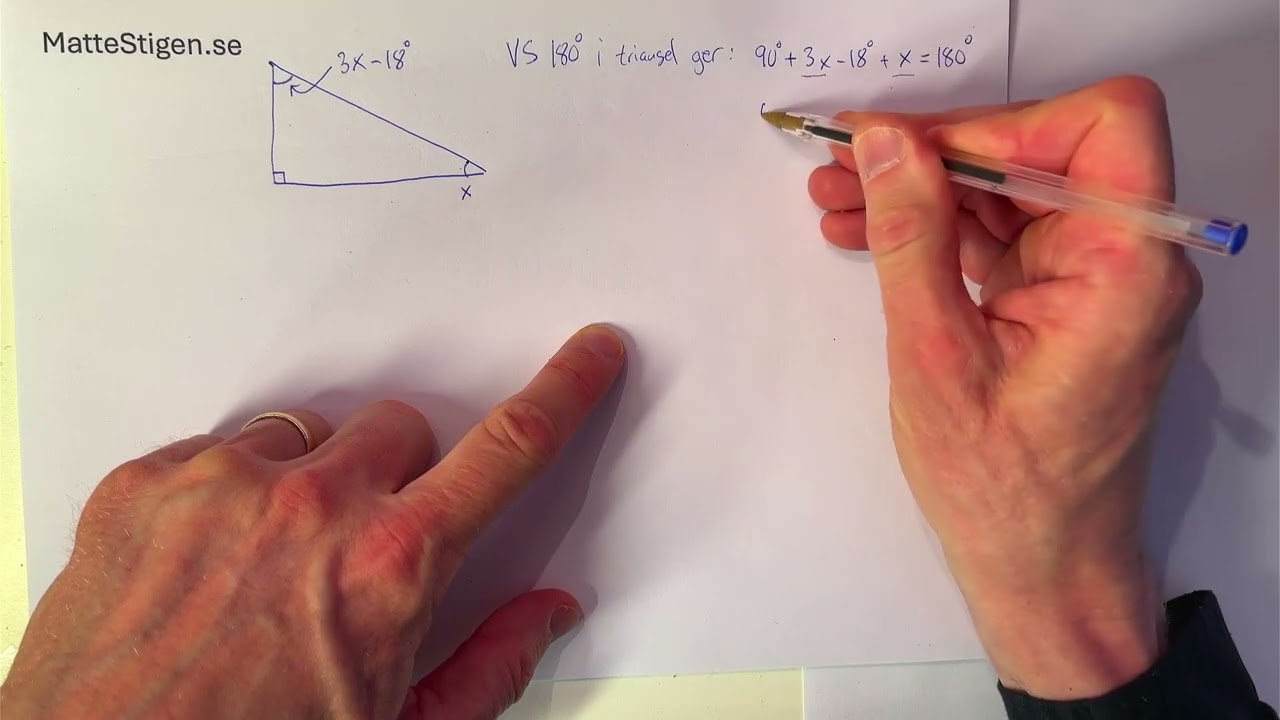 MatteStigen.se
3x-18°
VS 180° i triangel ger: 90°+3x-18°+x=180°
x